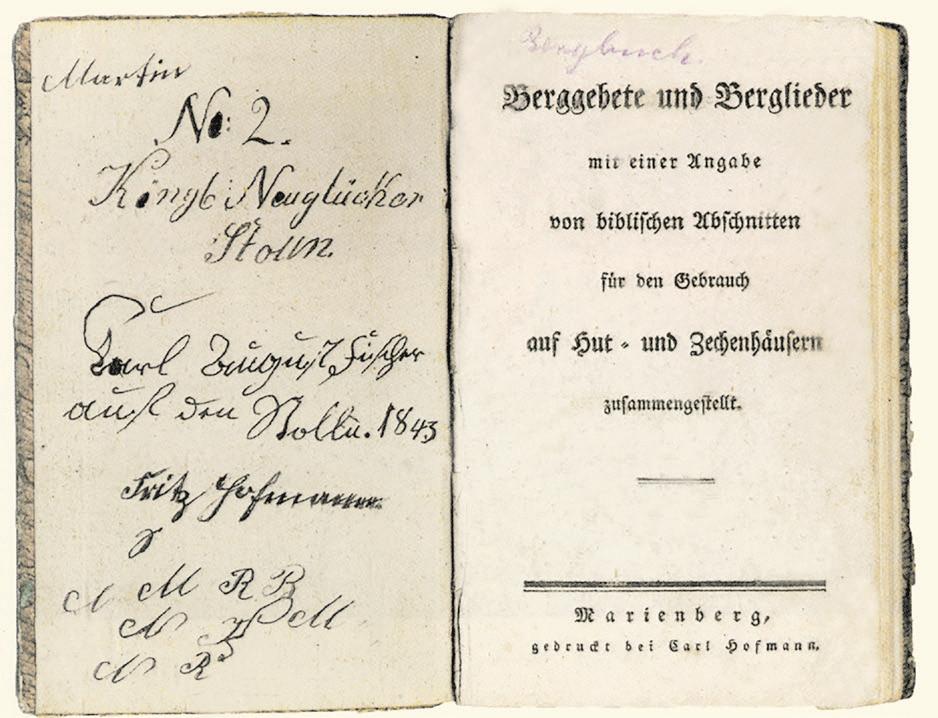 Martin
No: 2.
Neuglücker
Stolln.
Carl August Fischer
auf den Stolln. 1843
Fritz Hofmann
M R B
M
R
Bergbuch.
Berggebete und Berglieder
mit einer Angabe
von biblischen Abschnitten
für den Gebrauch
auf Hut- und Zechenhäusern
zusammengestellt.
Marienberg,
gedruckt bei Carl Hofmann.